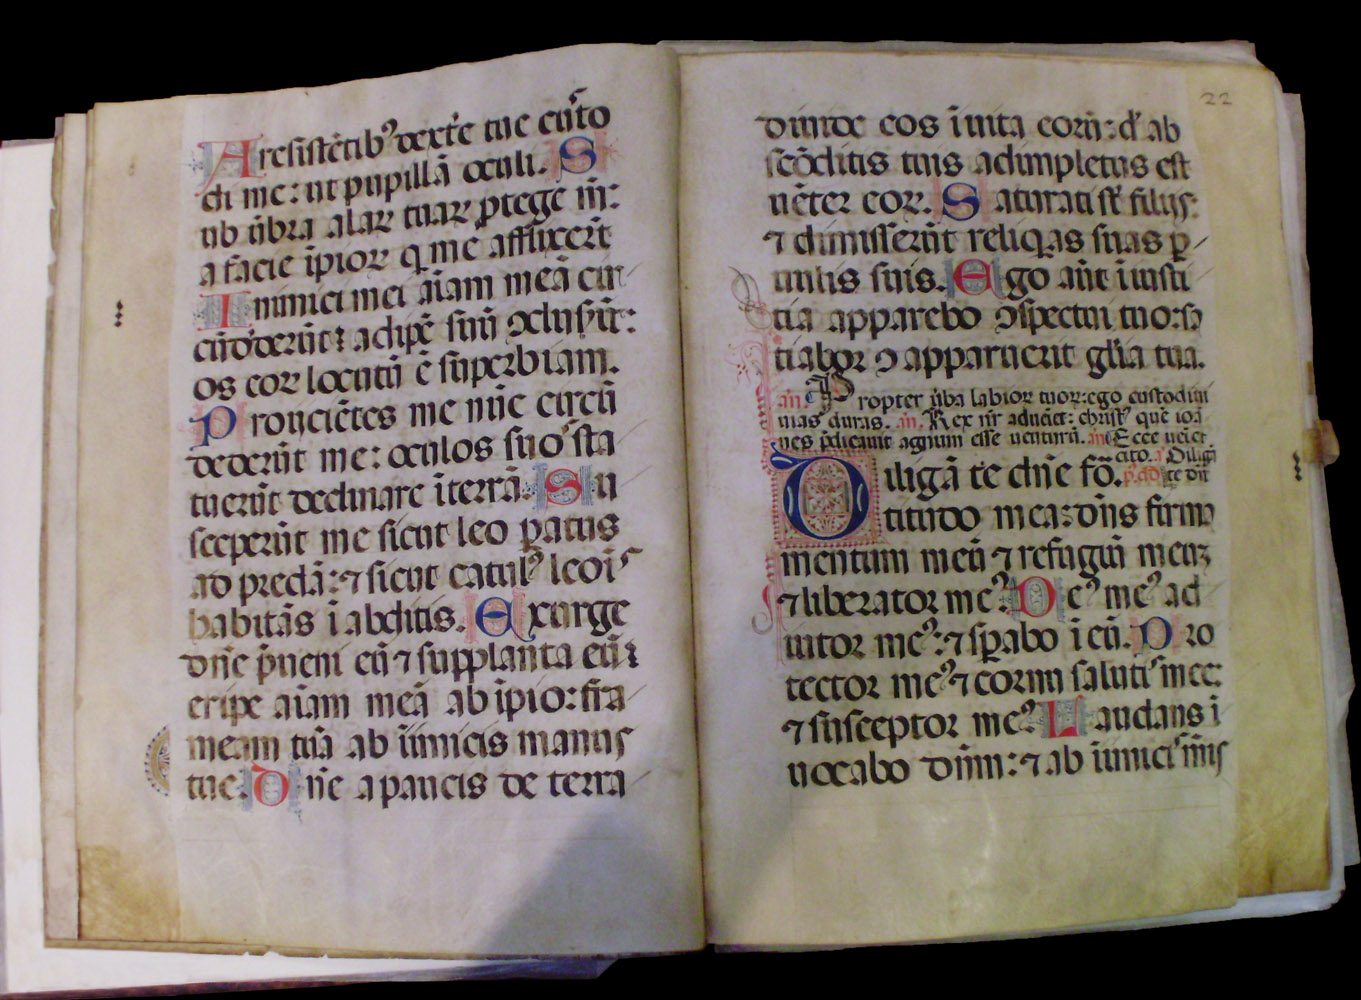 Aresistētibꝰ dext̄e tue cuſto
di me: ut pupillā oculi. S
ub ūbra alaꝝ tuaꝝ ꝓtege m̄:
a facie īpioꝝ q̄ me afflixerūt
Inimici mei aīam meā cir
cūdederūt: adipē suū ꝯcluserūt:
os eoꝝ locutū ē superbiam.
Proiiciētes me nūc circū
dederūt me: oculos suoˢ sta
tuerūt declinare ī terrā. Su
sceperūt me sicut leo patus
ad predā: ⁊ sicut catulꝰ leoīˢ
habitās ī abditis. Exurge
dn̄e p̄ueni eū ⁊ supplanta eū:
eripe aīam meā ab īpio: fra
meam tuā ab īimicis manus
tue. Dn̄e a paucis de terra
22
diuide eos ī uita eoꝝ: d̄ ab
scōditis tuis adimpletus est
uēter eoꝝ. Saturati sūt filiis:
⁊ dimiserūt reliquas suas ꝑ
uulis suis. Ego aūt ī iusti
tia apparebo ꝯspectui tuo: sa
tiaboꝝ ꝯ apparuerit glīa tua.
an̄. Propter ūba labioꝝ tuoꝝ: ego custodiui
uias duras. an̄. Rex nr̄ adueiet: christꝰ quē ioā
nes p̄dicauit agnum esse uenturū. an̄ Ecce ueiet
cito. a Diligā
Diligā te dn̄e fo. te dn̄
titudo mea: dn̄s firma
mentum meū ⁊ refugiū meuꝫ
⁊ liberator meꝰ. Deꝰ meꝰ ad
iutor meꝰ: ⁊ sꝑabo ī eū. Pro
tector meꝰ ⁊ cornu salutiˢ mee:
⁊ susceptor meꝰ. Laudans ī
uocabo dn̄m: ⁊ ab īimiciˢ meis